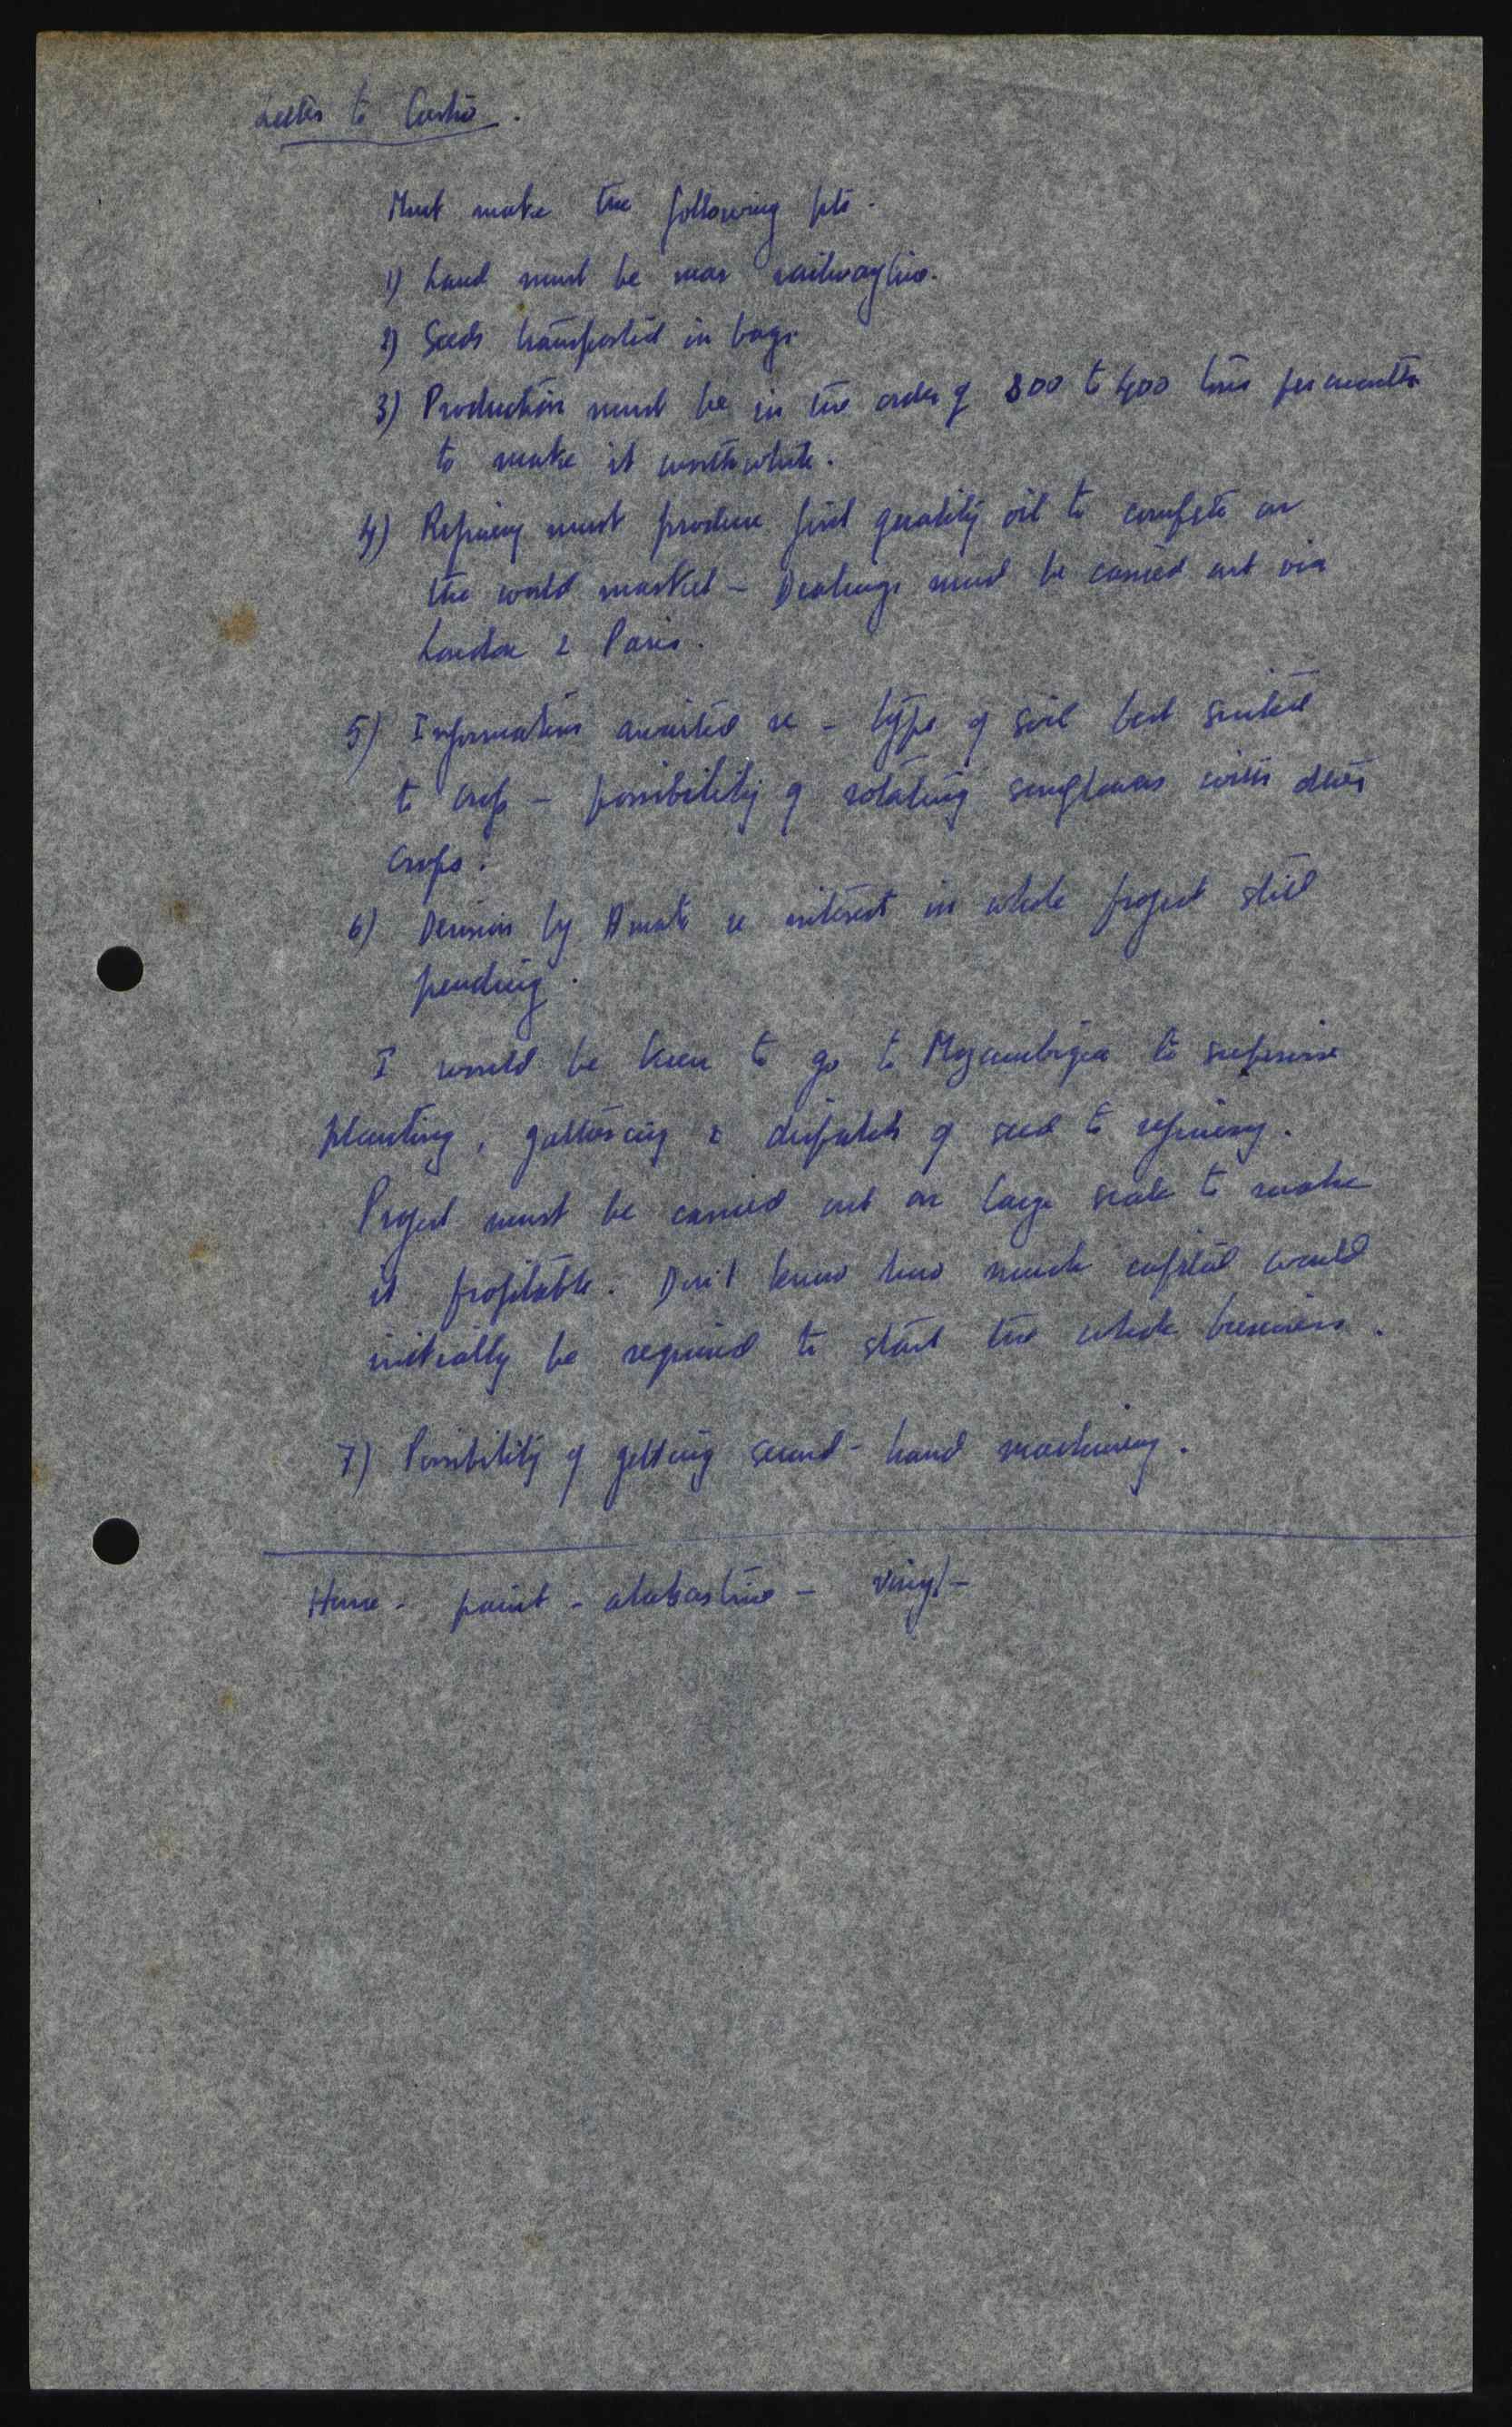 Letter to Castro.
Must make the following pts.
1) Land must be near railway line.
2) Seeds transported in bags.
3) Production must be in the order of 300 to 400 tons per month
to make it worthwhile.
4) Refinery must produce first quality oil to compete on
the world market - Dealings must be carried out via
London & Paris.
5) Information awaited re - type of soil best suited
to crop - possibility of rotating sunflowers with other
crops.
6) Decision by re interest in whole project still
pending.
I would be keen to go to Mozambique to supervise
planting, gathering & dispatch of seed to refinery.
Project must be carried out on large scale to make
it profitable. Don't know how much capital would
initially be required to start the whole business.
7) Possibility of getting second-hand machinery.
- paint - alabastine - vinyl -